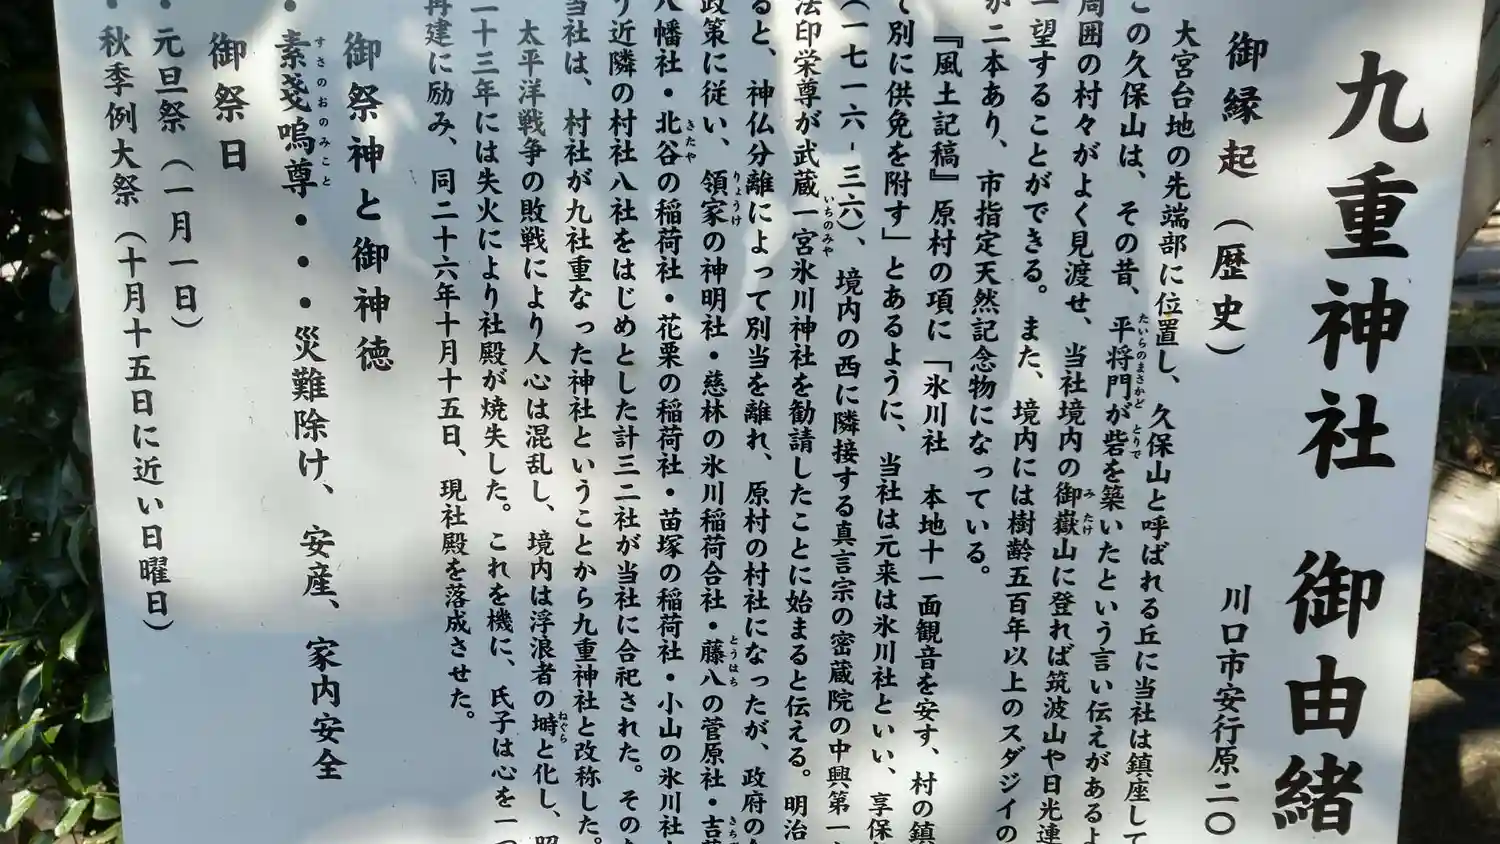 九重神社 御由緒
川口市安行原二〇
御縁起（歴史）
大宮台地の先端部に位置し、久保山と呼ばれる丘に当社は鎮座して
この久保山は、その昔、平将門が砦を築いたという言い伝えがあるよ
周囲の村々がよく見渡せ、当社境内の御嶽山に登れば筑波山や日光連
一望することができる。また、境内には樹齢五百年以上のスダジイの
が二本あり、市指定天然記念物になっている。
『風土記稿』原村の項に「氷川社 本地十一面観音を安す、村の鎮
て別に供免を附す」とあるように、当社は元来は氷川社といい、享保
（一七一六-三六）、境内の西に隣接する真言宗の密蔵院の中興第一
法印栄尊が武蔵一宮氷川神社を勧請したことに始まると伝える。明治
ると、神仏分離によって別当を離れ、原村の村社になったが、政府の
政策に従い、領家の神明社・慈林の氷川稲荷合社・藤八の菅原社・吉
八幡社・北谷の稲荷社・花栗の稲荷社・苗塚の稲荷社・小山の氷川社
う近隣の村社八社をはじめとした計三二社が当社に合祀された。その
当社は、村社が九社重なった神社ということから九重神社と改称した。
太平洋戦争の敗戦により人心は混乱し、境内は浮浪者の塒と化し、昭
二十三年には失火により社殿が焼失した。これを機に、氏子は心を一
再建に励み、同二十六年十月十五日、現社殿を落成させた。
御祭神と御神徳
・素戔嗚尊・・・災難除け、安産、家内安全
御祭日
・元旦祭（一月一日）
・秋季例大祭（十月十五日に近い日曜日）